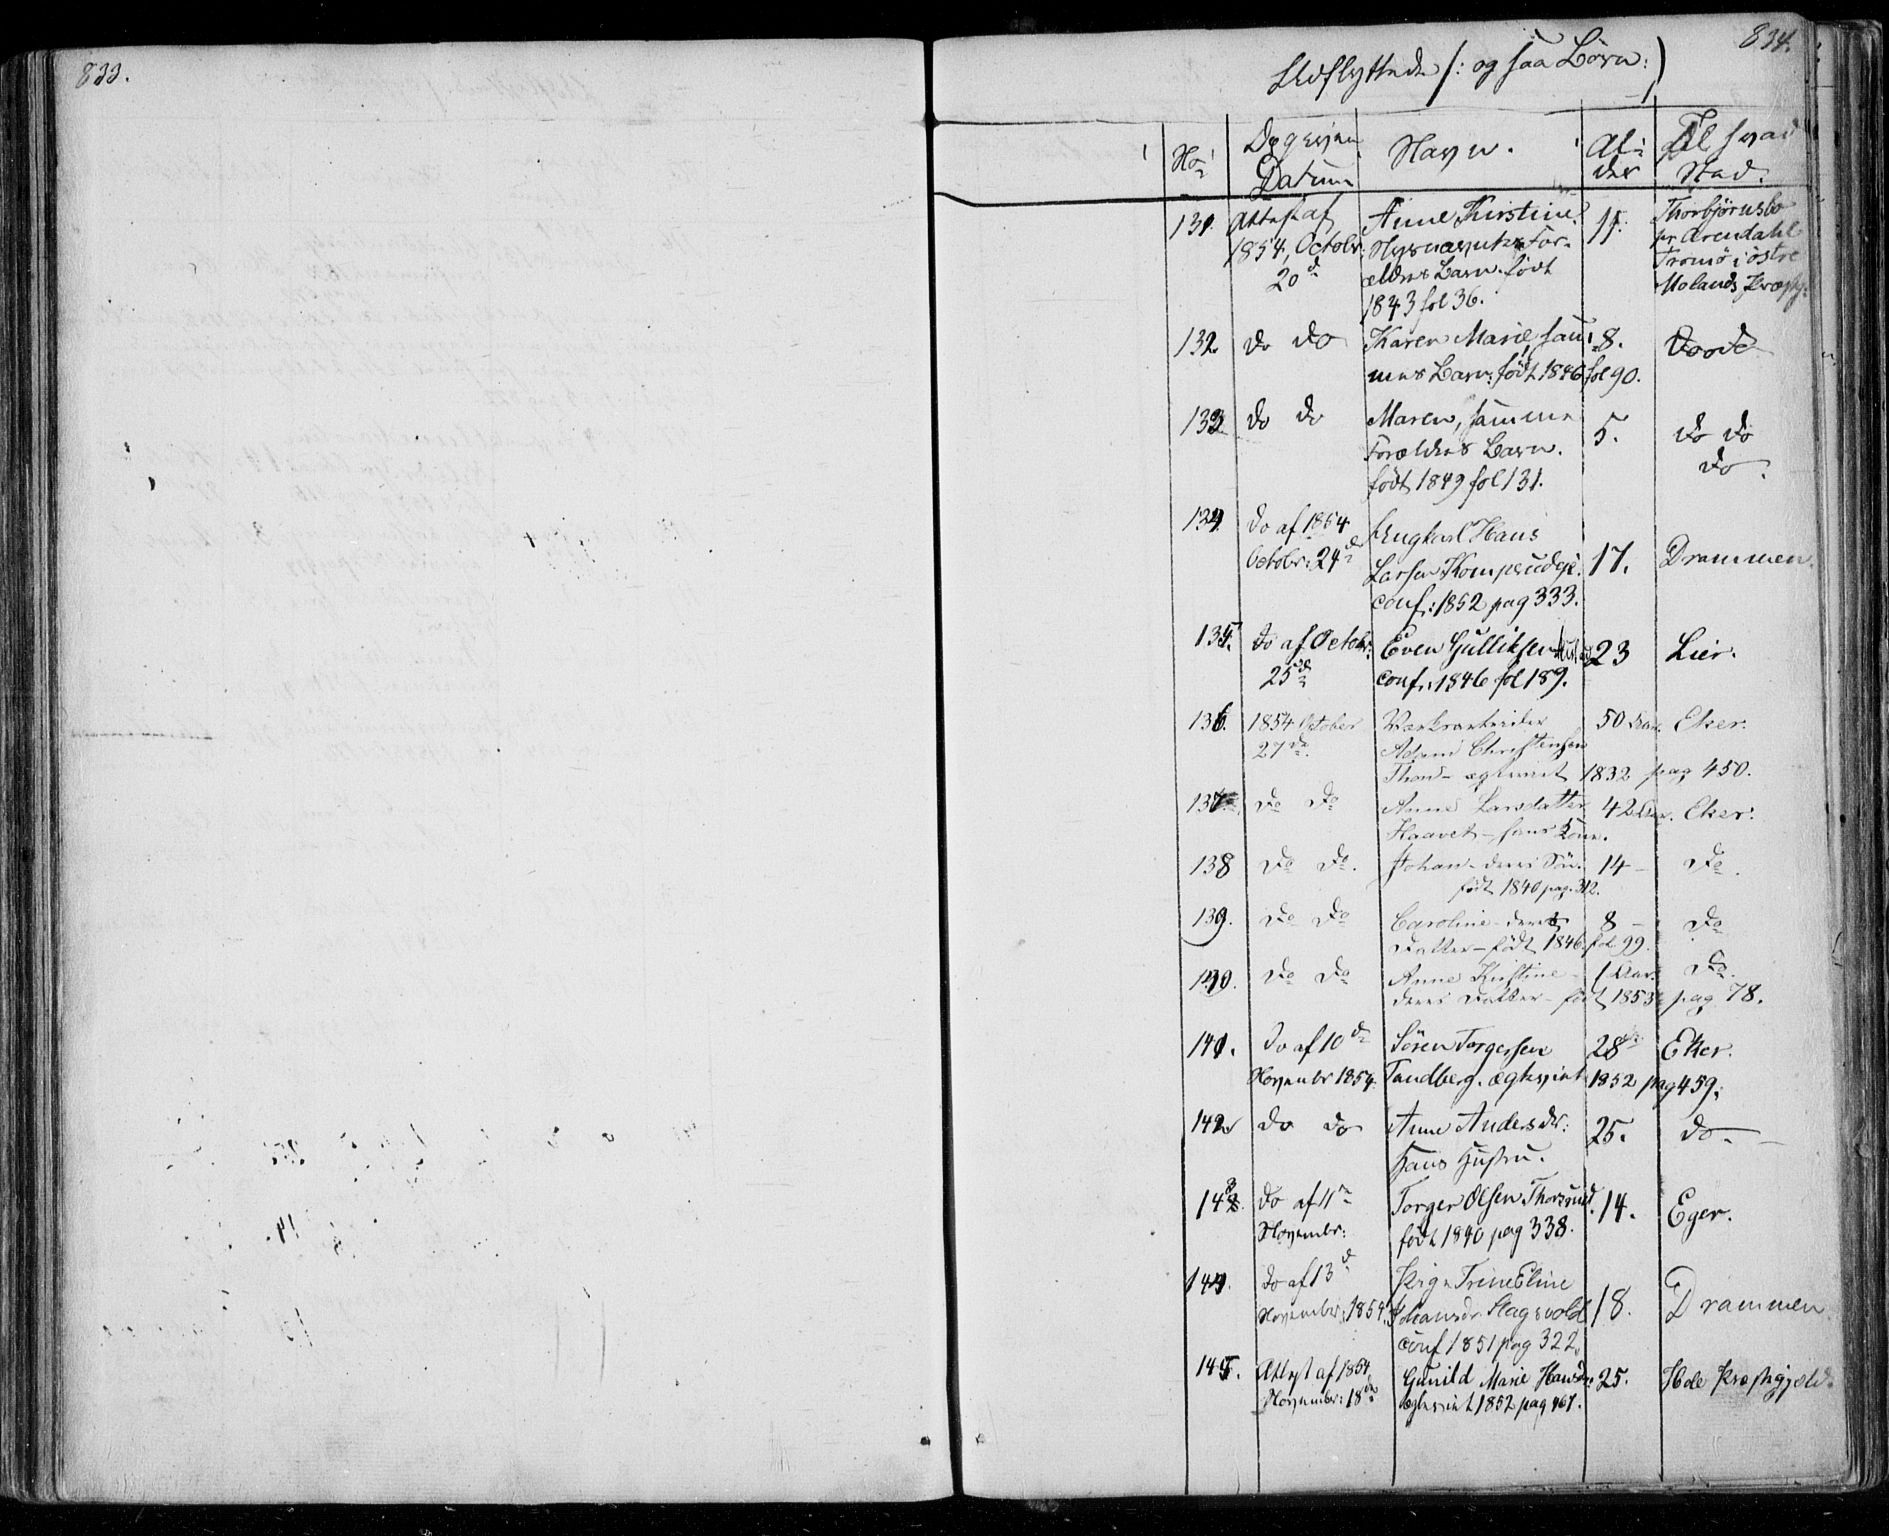 833.
834.
Udflyttede /: og saa Börn :/
No
Dag
Datum
Navn.
Al-
der
Til hvad
Stad.
131. Attest af Anne Kirstine 11. Thorbjörnsbo
1854, Octobr: For- pr Arendahl
20de ældres Barn. födt Tromö i östre
1843 fol 36. Molands Præstg.
132. do do Karen Marie, sam- 8.
mes Barn: födt 1846 fol 90.
133 do do Maren, samme 5. do do
Forældres Barn. do.
födt 1849 fol 131.
134. do af 1854 Ungkarl Hans
Octobr: 24de Larsen 17. Drammen.
conf: 1852 pag 333.
135. do af Octobr: Even Gulliksen 23 Lier.
25de conf: 1846 fol 189.
136. 1854 October 50 Aar. Eker.
27de. Christensen
ægteviet 1832 pag 450.
137 do do Anne Larsdatter 42 Aar. Eker.
Haavet - hans Kone.
138 do do. Johan - deres Sön. 14 - do.
födt 1840 pag. 312.
139. do do Caroline - deres 8 - do
Datter - födt 1846. fol 99.
140. do do Anne Kirstine - 1 Aar. do.
deres Datter - födt 1853 pag 78.
141. do af 10de Sören Torgersen 28 Eker.
Novembr 1854. Tandberg. ægteviet 1852 pag 459.
142. do do Anne Andersdr: 25. do.
hans Hustru.
143. do af 11te Torger Olsen Thorsrud. 14. Eger.
Novembr: födt 1840 pag 338.
144. do af 13de Pige Trine Eline
November: 1854. Johansdr. 18. Drammen
conf 1851 pag 322.
145. Attest af 1854 Gunild Marie Hansdr: 25. Hole Præstegjæld.
Novembr: 18de ægteviet 1852 pag 461.